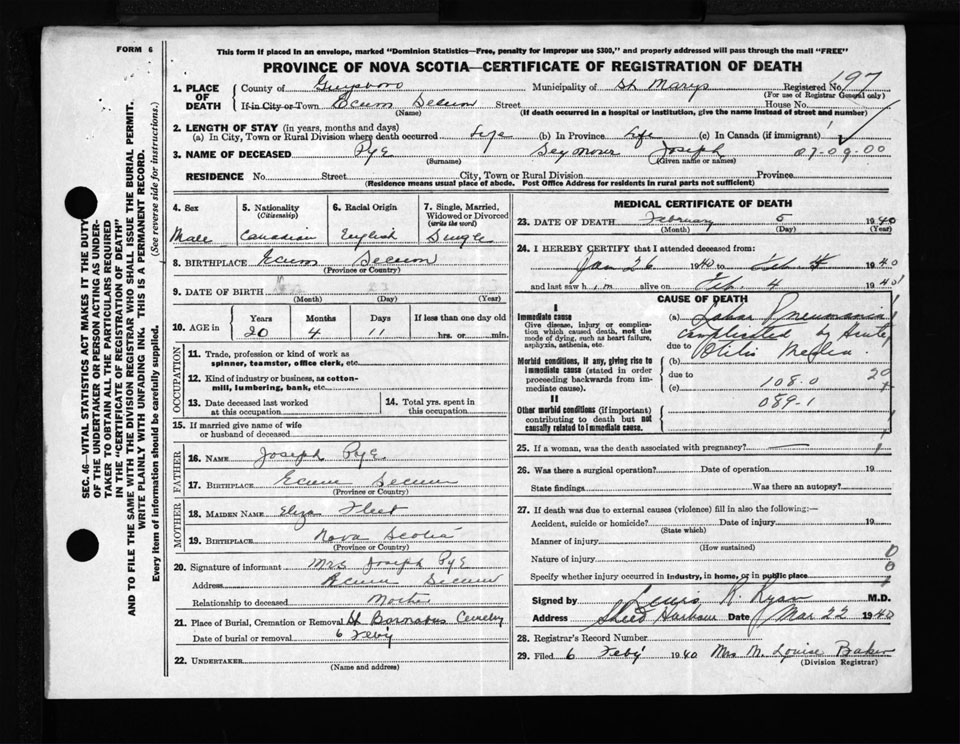 FORM 6
This form if placed in an envelope, marked "Dominion Statistics—Free, penalty for improper use $300," and properly addressed will pass through the mail "FREE"
PROVINCE OF NOVA SCOTIA—CERTIFICATE OF REGISTRATION OF DEATH
SEC. 46—VITAL STATISTICS ACT MAKES IT THE DUTY
OF THE UNDERTAKER OR PERSON ACTING AS UNDER-
TAKER TO OBTAIN ALL THE PARTICULARS REQUIRED
IN THE "CERTIFICATE OF REGISTRATION OF DEATH"
AND TO FILE THE SAME WITH THE DIVISION REGISTRAR WHO SHALL ISSUE THE BURIAL PERMIT.
WRITE PLAINLY WITH UNFADING INK. THIS IS A PERMANENT RECORD.
Every item of information should be carefully supplied. (See reverse side for instructions.)
1. PLACE OF DEATH County of Guysboro Municipality of St Marys Registered No. 197
(For use of Registrar General only)
If in City or Town Ecum Secum Street House No.
(Name) (If death occurred in a hospital or institution, give the name instead of street and number)
2. LENGTH OF STAY (in years, months and days)
(a) In City, Town or Rural Division where death occurred Life (b) In Province Life (c) In Canada (if immigrant)
3. NAME OF DECEASED Pye Seymour Joseph 07-09-00
(Surname) (Given name or names)
RESIDENCE No. Street City, Town or Rural Division Province
(Residence means usual place of abode. Post Office Address for residents in rural parts not sufficient)
4. Sex Male
5. Nationality (Citizenship) Canadian
6. Racial Origin English
7. Single, Married, Widowed or Divorced (write the word) Single
8. BIRTHPLACE Ecum Secum
(Province or Country)
9. DATE OF BIRTH
(Month) (Day) (Year)
10. AGE in Years Months Days If less than one day old
20 4 11 hrs. or min.
OCCUPATION
11. Trade, profession or kind of work as spinner, teamster, office clerk, etc.
12. Kind of industry or business, as cotton-mill, lumbering, bank, etc.
13. Date deceased last worked at this occupation
14. Total yrs. spent in this occupation
15. If married give name of wife or husband of deceased
FATHER
16. NAME Joseph Pye
17. BIRTHPLACE Ecum Secum
(Province or Country)
MOTHER
18. MAIDEN NAME Eliza Fleet
19. BIRTHPLACE Nova Scotia
(Province or Country)
20. Signature of informant Mrs Joseph Pye
Address Ecum Secum
Relationship to deceased Mother
21. Place of Burial, Cremation or Removal St Barnabus Cemetery
Date of burial or removal 6 Feby
22. UNDERTAKER
(Name and address)
MEDICAL CERTIFICATE OF DEATH
23. DATE OF DEATH February 5 1940
(Month) (Day) (Year)
24. I HEREBY CERTIFY that I attended deceased from:
Jan 26 1940 to Feb 4 1940
and last saw him alive on Feb. 4 1940
CAUSE OF DEATH
I
Immediate cause
Give disease, injury or complication which caused death, not the mode of dying, such as heart failure, asphyxia, asthenia, etc.
(a) Lobar Pneumonia
complicated by Acute
due to Otitis Media.
Morbid conditions, if any, giving rise to immediate cause (stated in order proceeding backwards from immediate cause).
(b)
due to
(c) 108.0
089-1
II
Other morbid conditions (if important) contributing to death but not causally related to immediate cause.
25. If a woman, was the death associated with pregnancy?
26. Was there a surgical operation? Date of operation 19
State findings Was there an autopsy?
27. If death was due to external causes (violence) fill in also the following:—
Accident, suicide or homicide? Date of injury 19
(State which)
Manner of injury
(How sustained)
Nature of injury
Specify whether injury occurred in industry, in home, or in public place
Signed by Lewis R. Ryan M.D.
Address Sheet Harbour Date Mar 22 1940
28. Registrar's Record Number
29. Filed 6 Feby 1940 Mrs M. Louise Baker
(Division Registrar)